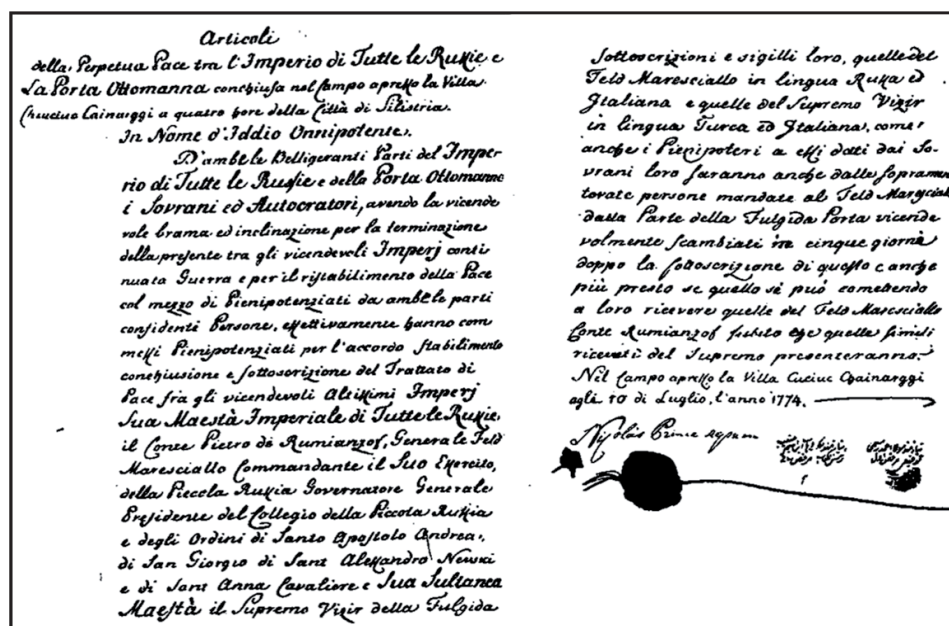 Articoli
della Perpetua Pace tra l'Imperio di Tutte le Russie e
La Porta Ottomanna conchiusa nel Campo apresso la Villa
Chiuciuc Cainarggi a quatro hore della Città di Silistria.
In Nome d'Iddio Onnipotente.
D'ambe le Belligeranti Parti del Imper
rio di Tutte le Russie e della Porta Ottomanna
i Sovrani ed Autocratori, avendo la vicende
vole brama ed inclinazione per la terminazione
della presente tra gli vicendevoli Imperj conti
nuata Guerra e per il ristabilimento della Pace
col mezzo di Pienipotenziati da ambe le parti
confidenti Persone, effettivamente hanno com
messi Pienipotenziati per l'accordo stabilimento
conchiusione e sottoscrizione del Trattato di
Pace fra gli vicendevoli Altissimi Imperj
Sua Maestà Imperiale di Tutte le Russie
il Conte Pietro de Rumianzof, Generale Feld
Maresciallo Commandante il Suo Esercito,
della Piccola Russia Governatore Generale
Presidente del Collegio della Piccola Russia
e degli Ordini di Santo Apostolo Andrea,
di San Giorgio di Sant Alessandro Newski
e di Sant Anna Cavaliere e Sua Sultanea
Maestà il Supremo Vizir della Fulgida
sottoscrizioni e sigilli loro, quelle del
Feld Maresciallo in lingua Russa ed
Italiana e quelle del Supremo Vizir
in lingua Turca ed Italiana, come
anche i Pienipoteri a essi dati dai So-
vrani loro saranno anche dalle sopramen
tovate persone mandate al Feld Maresciall
dalla Parte della Fulgida Porta vicende
volmente scambiati in cinque giorni
doppo la sottoscrizione di questo e anche
più presto se quello si può comettendo
a loro ricevere quelle del Feld Maresciallo
Conte Rumianzof subito che quelle simili
ricevuti del Supremo presenteranno.
Nel Campo apresso la Villa Cuciuc Chainarggi
agli 10 di Luglio, l'anno 1774.
Nicolas Prince